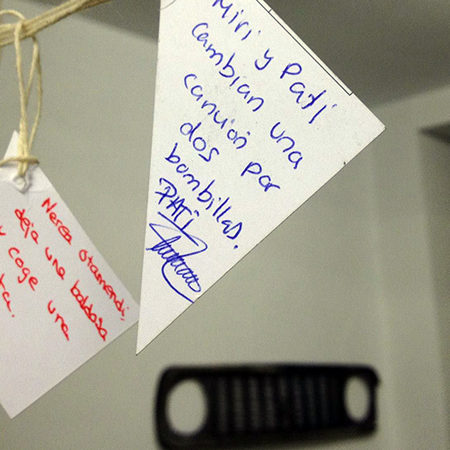 Miri y Pati
cambian una
canción por
dos
bombillas.
PATI
Nerea Otamendi,
deja una baldosa
y coge una